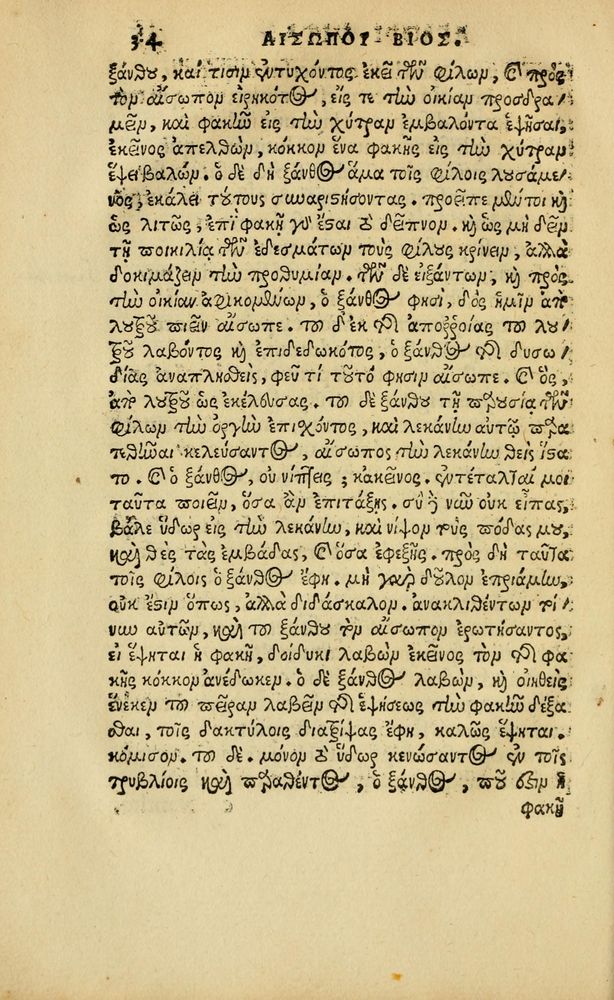 34 ΑΙΣΩΠΟΥ ΒΙΟΣ.
ξάνθου, καί τισιν ἐντυχόντος ἐκεῖ τῶν φίλων, καὶ πρὸς
τὸν αἴσωπον εἰρηκότος, εἴς τε τὴν οἰκίαν προσδρα-
μεῖν, καὶ φακῶ εἰς τὴν χύτραν ἐμβαλόντα ἑψῆσαι,
ἐκεῖνος ἀπελθὼν, κόκκον ἕνα φακῆς εἰς τὴν χύτραν
ἕψει βαλών. ὁ δὲ δὴ ξάνθος ἅμα τοῖς φίλοις λουσάμε-
νος, ἐκάλει τούτους συναριστήσοντας. προεῖπε μέντοι καὶ
ὡς λιτῶς, ἐπὶ φακῇ γὰρ ἔσται τὸ δεῖπνον. καὶ ὡς μὴ δεῖν
τῇ ποικιλίᾳ τῶν ἐδεσμάτων τοὺς φίλους κρίνειν, ἀλλὰ
δοκιμάζειν τὴν προθυμίαν. τῶν δὲ εἰξάντων, καὶ πρὸς
τὴν οἰκίαν ἀφικομένων, ὁ ξάνθος φησὶ, δὸς ἡμῖν ἀπὸ
λουτροῦ πιεῖν αἴσωπε. τοῦ δ' ἐκ τῆς ἀποῤῥοίας τοῦ λου-
τροῦ λαβόντος καὶ ἐπιδεδωκότος, ὁ ξάνθος τῆς δυσω-
δίας ἀναπλησθεὶς, φεῦ τί τοῦτό φησιν αἴσωπε. καὶ ὃς,
ἀπὸ λουτροῦ ὡς ἐκέλευσας. τοῦ δὲ ξάνθου τῇ παρουσίᾳ τῶν
φίλων τὴν ὀργὴν ἐπισχόντος, καὶ λεκάνην αὐτῷ παρα
τεθῆναι κελεύσαντος, αἴσωπος τὴν λεκάνην θεὶς ἵστα
το. καὶ ὁ ξάνθος, οὐ νίπτεις; κἀκεῖνος. ἐντέταλταί μοι
ταῦτα ποιεῖν, ὅσα ἂν ἐπιτάξῃς. σὺ δὲ νῦν οὐκ εἶπας,
βάλε ὕδωρ εἰς τὴν λεκάνην, καὶ νίψον τοὺς πόδας μου,
καὶ θὲς τὰς ἐμβάδας, καὶ ὅσα ἐφεξῆς. πρὸς δὴ ταῦτα
τοῖς φίλοις ὁ ξάνθος ἔφη. μὴ γὰρ δοῦλον ἐπριάμην,
οὐκ ἔστιν ὅπως, ἀλλὰ διδάσκαλον. ἀνακλιθέντων τοί-
νυν αὐτῶν, καὶ τοῦ ξάνθου τὸν αἴσωπον ἐρωτήσαντος,
εἰ ἕψηται ἡ φακῆ, δοίδυκι λαβὼν ἐκεῖνος τὸν τῆς φα
κῆς κόκκον ἀνέδωκεν. ὁ δὲ ξάνθος λαβὼν, καὶ οἰηθεὶς
ἕνεκεν τοῦ πεῖραν λαβεῖν τῆς ἑψήσεως τὴν φακῆν δέξα
σθαι, τοῖς δακτύλοις διατρίψας ἔφη, καλῶς ἕψηται.
κόμισον. τοῦ δὲ. μόνον τὸ ὕδωρ κενώσαντος ἐν τοῖς
τρυβλίοις καὶ παραθέντος, ὁ ξάνθος, ποῦ ἐστιν ἡ
φακῆ